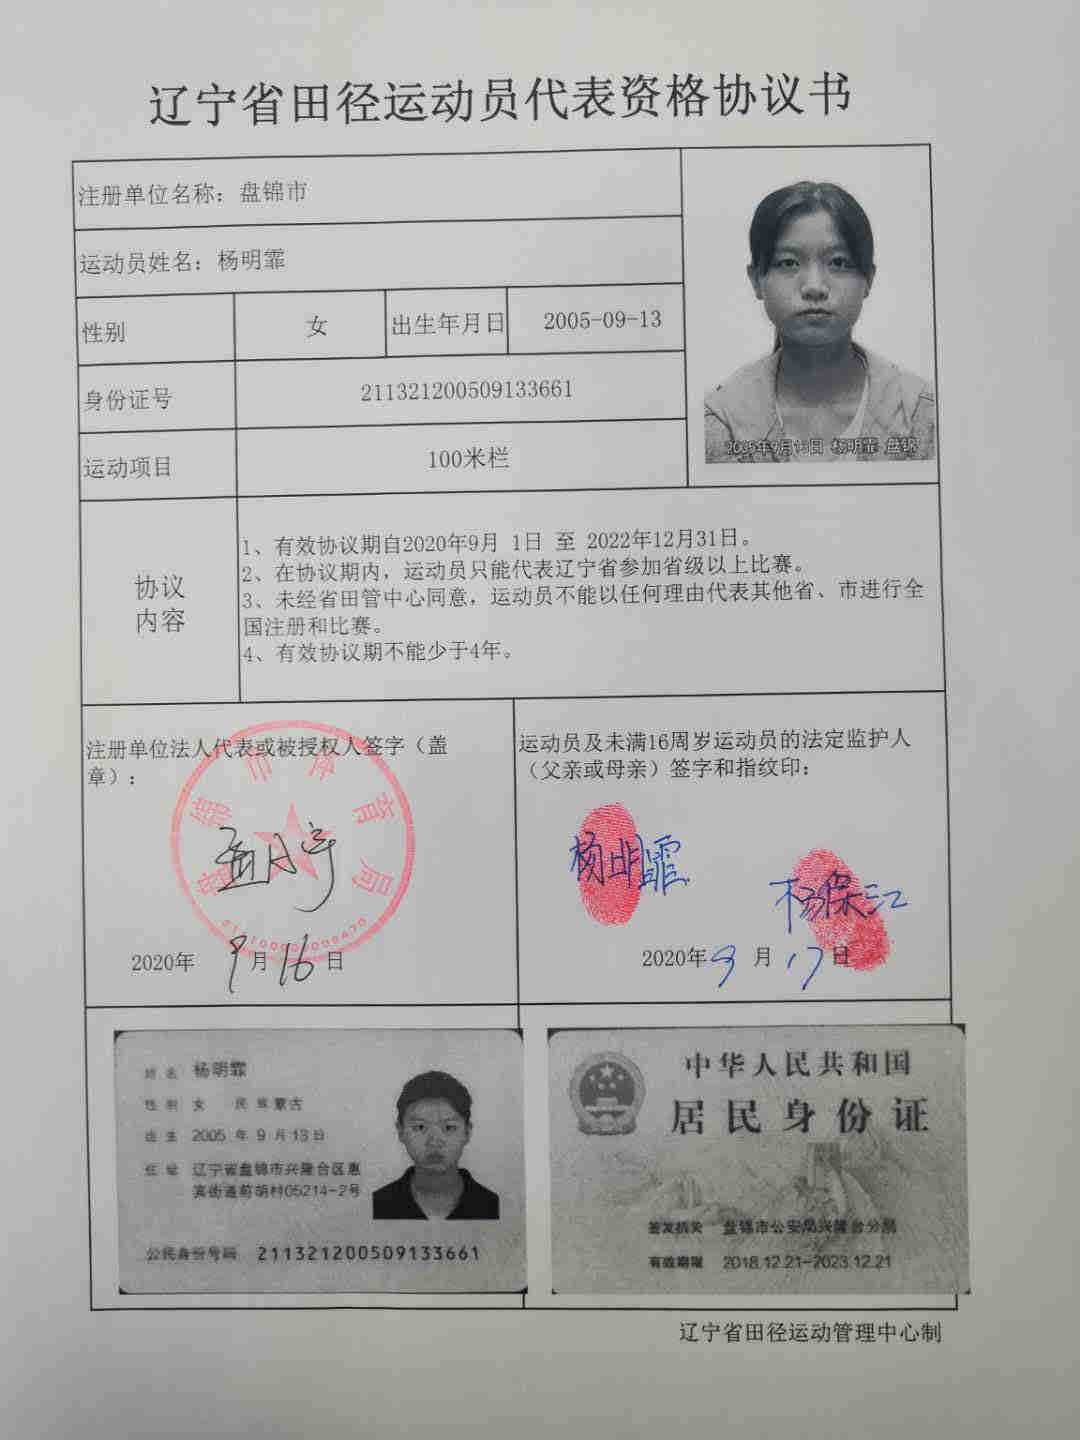 辽宁省田径运动员代表资格协议书
注册单位名称：盘锦市
运动员姓名：杨明霏
性别 女 出生年月日 2005-09-13
身份证号 211321200509133661
运动项目 100米栏
2005年9月13日 杨明霏 盘锦
协议
内容
1、有效协议期自2020年9月 1日 至 2022年12月31日。
2、在协议期内，运动员只能代表辽宁省参加省级以上比赛。
3、未经省田管中心同意，运动员不能以任何理由代表其他省、市进行全
国注册和比赛。
4、有效协议期不能少于4年。
注册单位法人代表或被授权人签字（盖
章）：
盘锦市体育局
2020年 9月 16日
运动员及未满16周岁运动员的法定监护人
（父亲或母亲）签字和指纹印：
杨明霏
杨保江
2020年9月17日
姓名 杨明霏
性别 女 民族 蒙古
出生 2005 年 9 月 13 日
住址 辽宁省盘锦市兴隆台区惠
宾街道前胡村05214-2号
公民身份号码 211321200509133661
中华人民共和国
居民身份证
签发机关 盘锦市公安局兴隆台分局
有效期限 2018.12.21-2023.12.21
辽宁省田径运动管理中心制